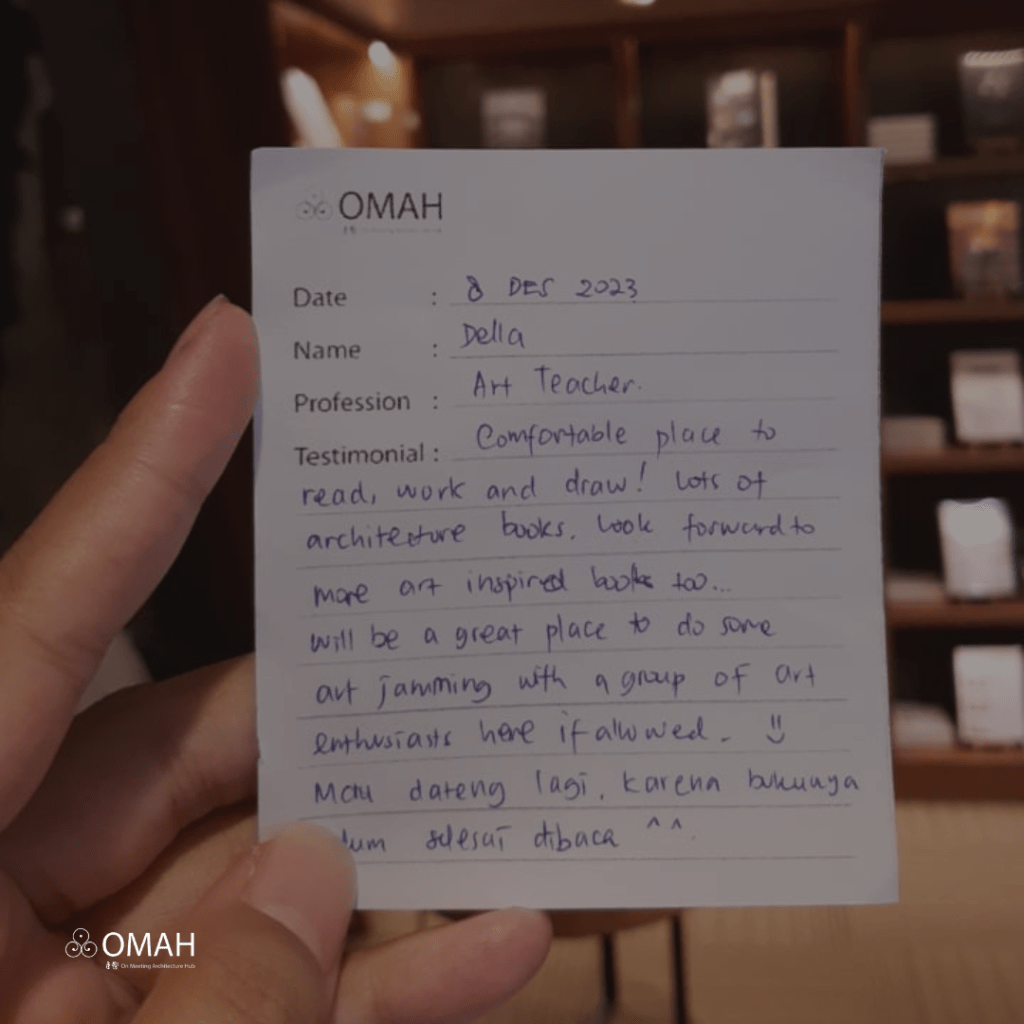 OMAH
Date : 8 DES 2023
Name : Della
Profession : Art Teacher.
Testimonial : Comfortable place to
read, work and draw! Lots of
architecture books. Look forward to
more art inspired books too...
will be a great place to do some
art jamming with a group of art
enthusiasts here if allowed.
Mau dateng lagi, karena bukunya
lum selesai dibaca ^ ^.
OMAH
On Meeting Architecture Hub